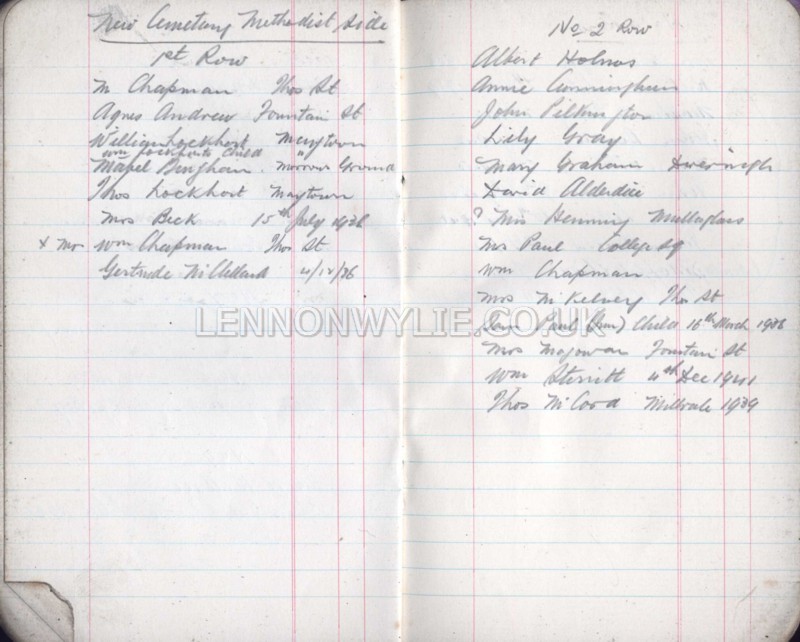 New Cemetery Methodist Side
1st Row
M Chapman Thos St
Agnes Andrew Fountain St
William Lockhart Maytown
Wm Lockharts Child "
Mabel Bingham Morrow Ground
Thos Lockhart Maytown
Mrs Beck 15th July 1936
x Mrs Wm Chapman Thos St
Gertrude McClelland 4/12/36
No 2 Row
Albert Holmes
Annie Cunningham
John Pilkington
Lily Gray
Mary Graham
David Alderdice
? Mrs Henning Mullaglass
Mrs Paul College Sq
Wm Chapman
Mrs McKelvey Thos St
Paul (Jun) Child 16th March 1938
Mrs Magowan Fountain St
Wm Sterritt 4th Dec 1941
Thos McCord Millvale 1939
LENNONWYLIE.CO.UK